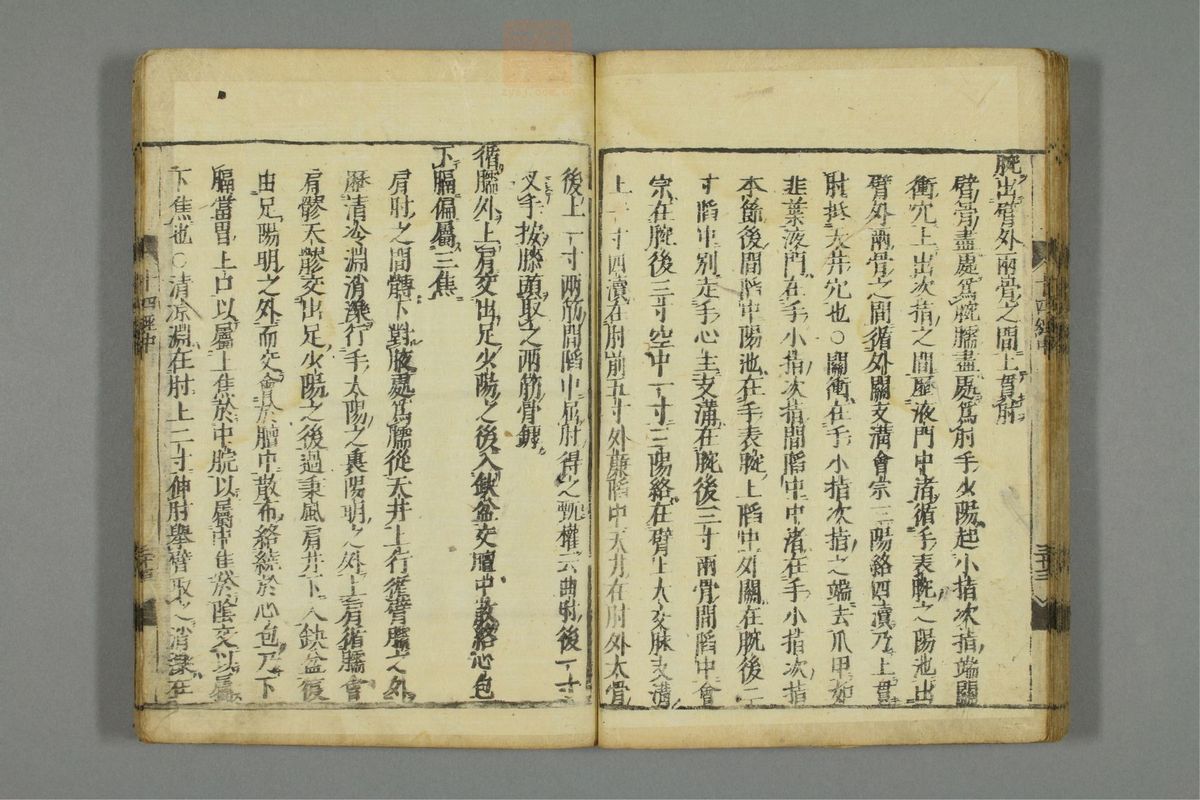 腕出臂外兩骨之間上貫肘
臂骨盡處爲腕臑盡處爲肘手少陽起小指次指端關
衝穴上出次指之間歷液門中渚循手表腕之陽池出
臂外兩骨之間循外關支溝會宗三陽絡四瀆乃上貫
肘抵天井穴也○關衝在手小指次指之端去爪甲如
韭葉液門在手小指次指間陷中中渚在手小指次指
本節後間陷中陽池在手表腕上陷中外關在腕後二
寸陷中別走手心主支溝在腕後三寸兩骨間陷中會
宗在腕後三寸空中一寸三陽絡在臂上大交脉支溝
上一寸四瀆在肘前五寸外廉陷中天井在肘外大骨
後上一寸兩筋間陷中屈肘得之甄權云曲肘後一寸
叉手按膝頭取之兩筋骨罅
循臑外上肩交出足少陽之後入缺盆交膻中散絡心包
下膈偏屬三焦
肩肘之間髆下對腋處爲臑從天井上行循臂臑之外
歷清冷淵消濼行手太陽之裏陽明之外上肩循臑會
肩髎天髎交出足少陽之後過秉風肩井下入缺盆復
由足陽明之外而交會於膻中散布絡繞於心包乃下
膈當胃上口以屬上焦於中脘以屬中焦於陰交以屬
下焦也○清涼淵在肘上二寸伸肘舉臂取之消濼在
十四經中
十四經中